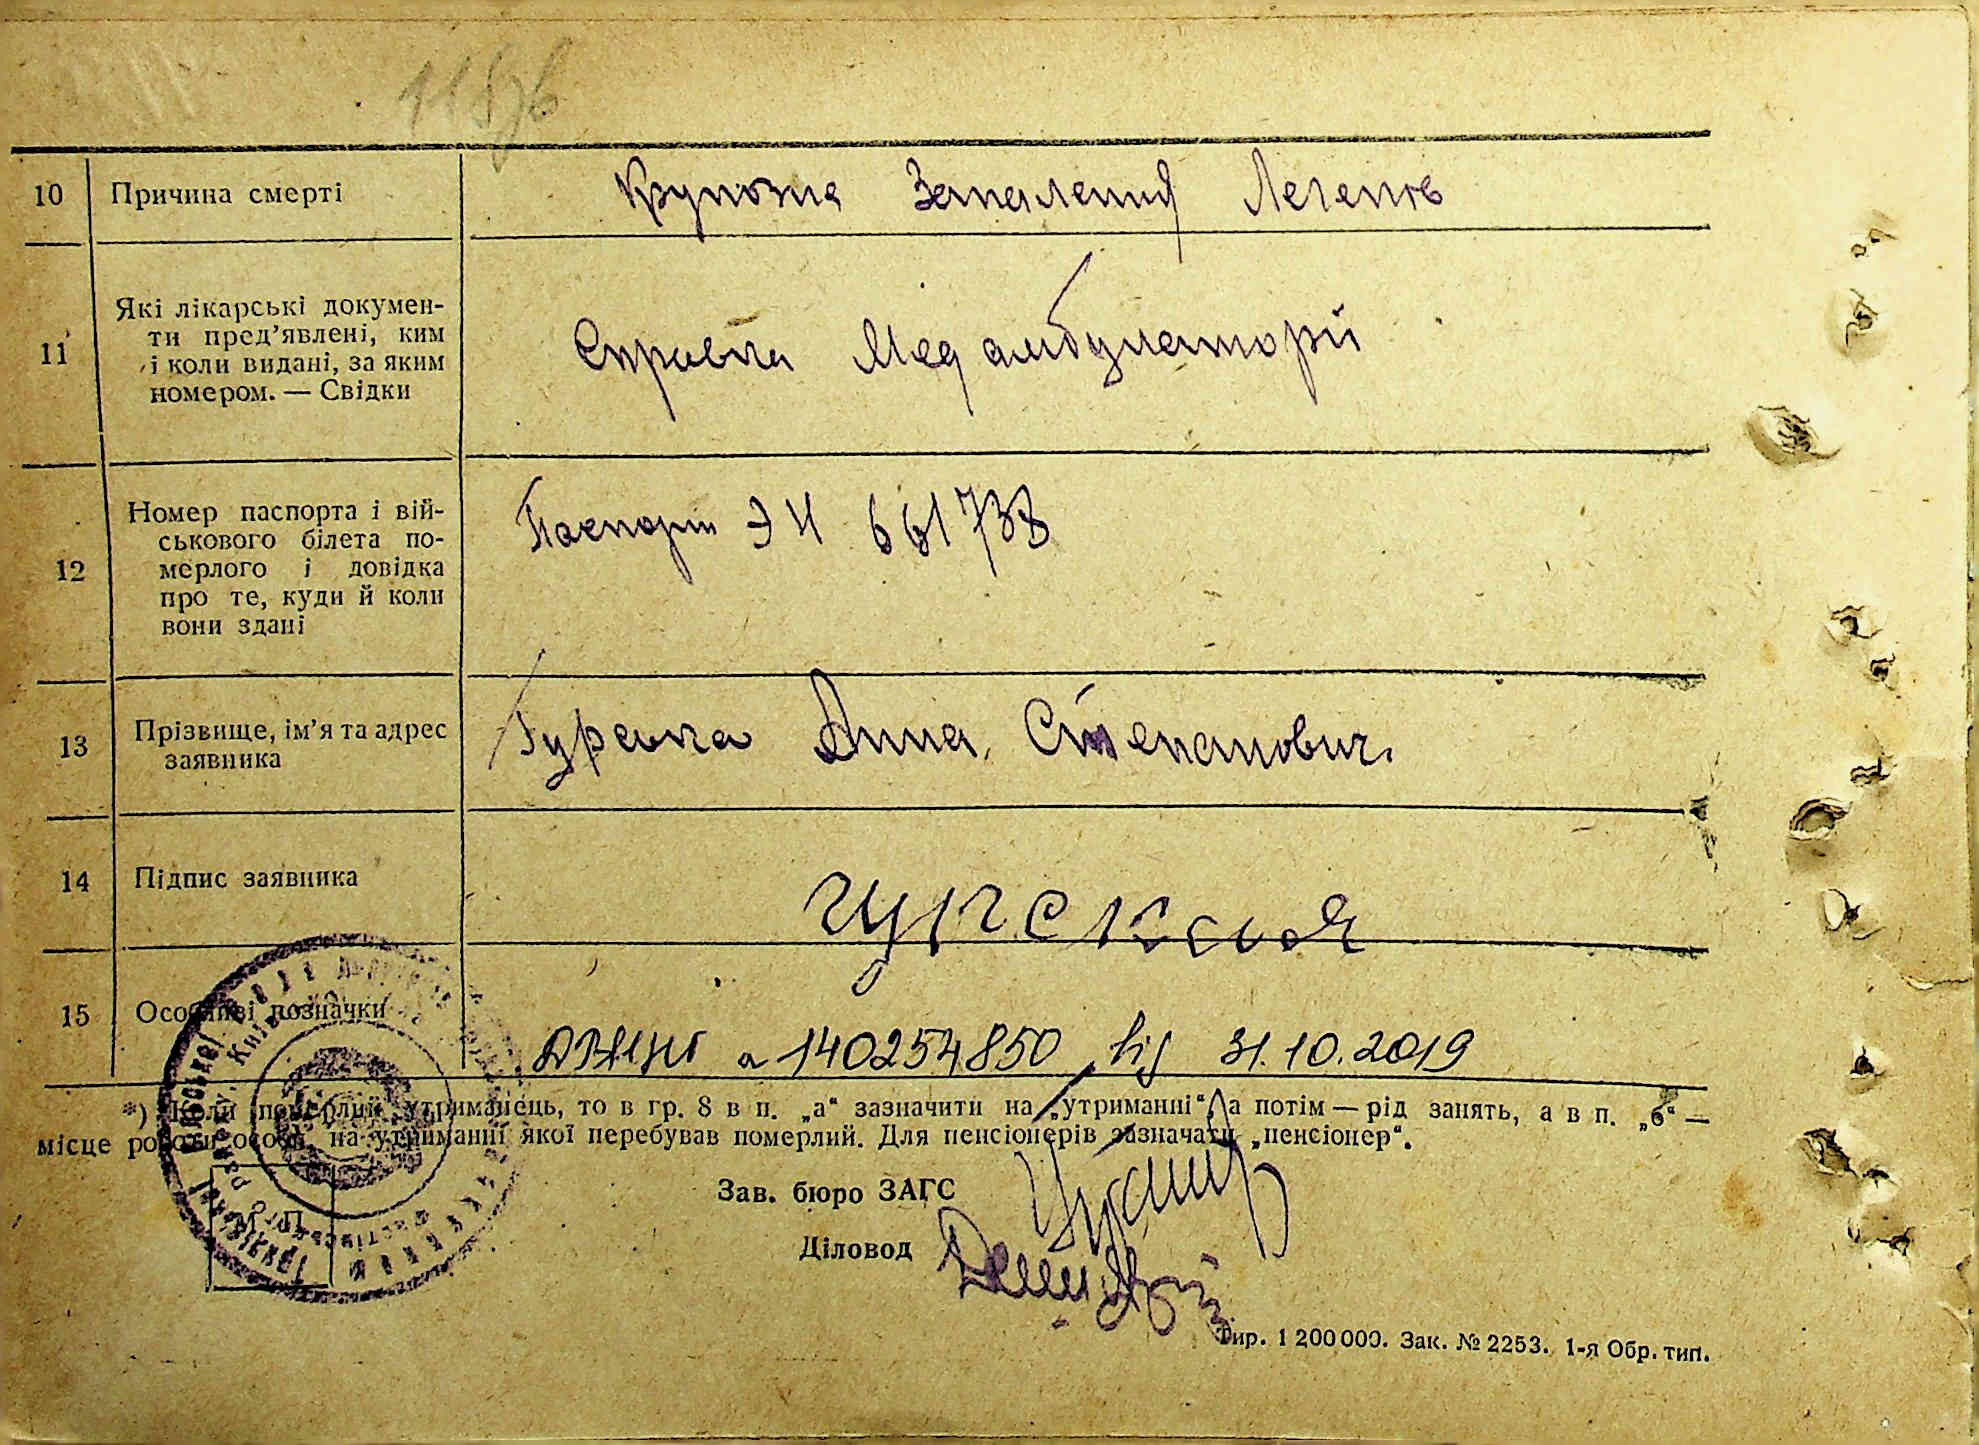 10 Причина смерті Крупозне Запалення Легенів
11 Які лікарські докумен-
ти пред’явлені, ким
і коли видані, за яким
номером. — Свідки
Справка Мед амбулаторії
12 Номер паспорта і вій-
ськового білета по-
мерлого і довідка
про те, куди й коли
вони здані
Паспорт ЭЧ 661738
13 Прізвище, ім’я та адрес
заявника
Анна Степанович.
14 Підпис заявника
15 Особливі позначки
140254850 від 31.10.2019
*) Коли померлий утриманець, то в гр. 8 в п. „а“ зазначити на „утриманні“, а потім — рід занять, а в п. „б“ —
місце роботи особи, на утриманні якої перебував померлий. Для пенсіонерів зазначати „пенсіонер“.
М П
Зав. бюро ЗАГС
Діловод
Тир. 1 200 000. Зак. № 2253. 1-я Обр. тип.